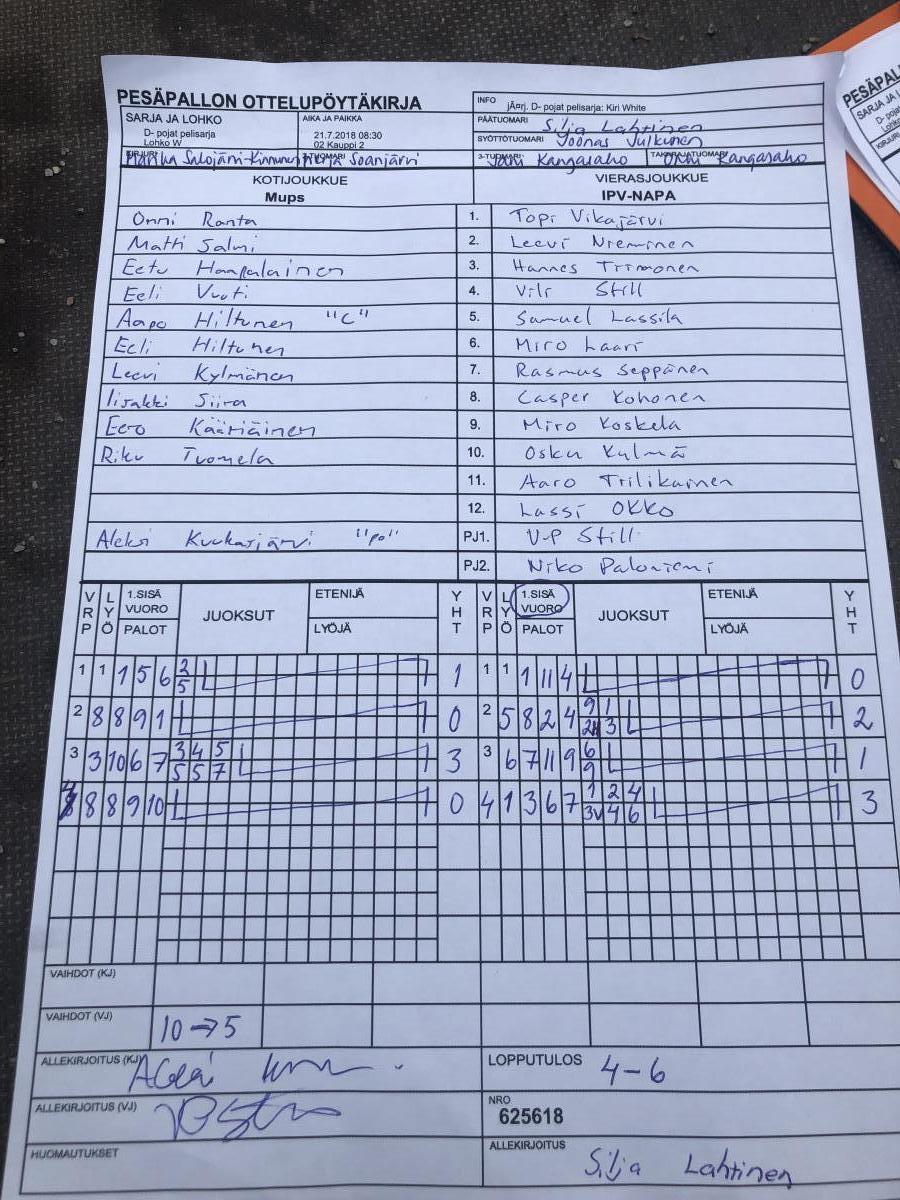 PESÄPALLON OTTELUPÖYTÄKIRJA
INFO jÄ¤rj. D- pojat pelisarja: Kiri White
SARJA JA LOHKO
D- pojat pelisarja
Lohko W
AIKA JA PAIKKA
21.7.2018 08:30
02 Kauppi 2
PÄÄTUOMARI Silja Lahtinen
SYÖTTÖTUOMARI Joonas Julkunen
Marika Salojärvi-Kinnunen Soanjärvi
Jani Kangasaho Kangasaho
KOTIJOUKKUE
Mups
VIERASJOUKKUE
IPV-NAPA
Onni Ranta 1. Topi Vikajärvi
Matti Salmi 2. Leevi Nieminen
Eetu Haapalainen 3. Hannes Tiimonen
Eeli Vuoti 4. Vili Still
Aapo Hiltunen "C" 5. Samuel Lassila
Eeli Hiltunen 6. Miro Laari
Leevi Kylmänen 7. Rasmus Seppänen
Iisakki Siira 8. Casper Kohonen
Eero Kääriäinen 9. Miro Koskela
Riku Tuomela 10. Osku Kylmä
11. Aaro Tiilikainen
12. Lassi Okko
Aleksi Kuukasjärvi "po" PJ1. V-P Still
PJ2. Niko Paloniemi
VRP LYÖ 1.SISÄ VUORO PALOT JUOKSUT ETENIJÄ LYÖJÄ YHT VRP LYÖ 1.SISÄ VUORO PALOT JUOKSUT ETENIJÄ LYÖJÄ YHT
1 1 1 5 6 2 5 1 1 1 1 11 4 0
2 8 8 9 1 0 2 5 8 2 4 9 1 3 2
3 3 10 6 7 3 4 5 5 5 7 3 3 6 7 11 9 6 9 1
4 8 8 9 10 0 4 1 3 6 7 1 2 4 3v 4 6 3
VAIHDOT (KJ)
VAIHDOT (VJ) 10→5
ALLEKIRJOITUS (KJ)
LOPPUTULOS 4-6
ALLEKIRJOITUS (VJ)
NRO
625618
HUOMAUTUKSET
ALLEKIRJOITUS Silja Lahtinen
PESÄPAL
SARJA JA L
D- pojat
Lohko
KIRJURI